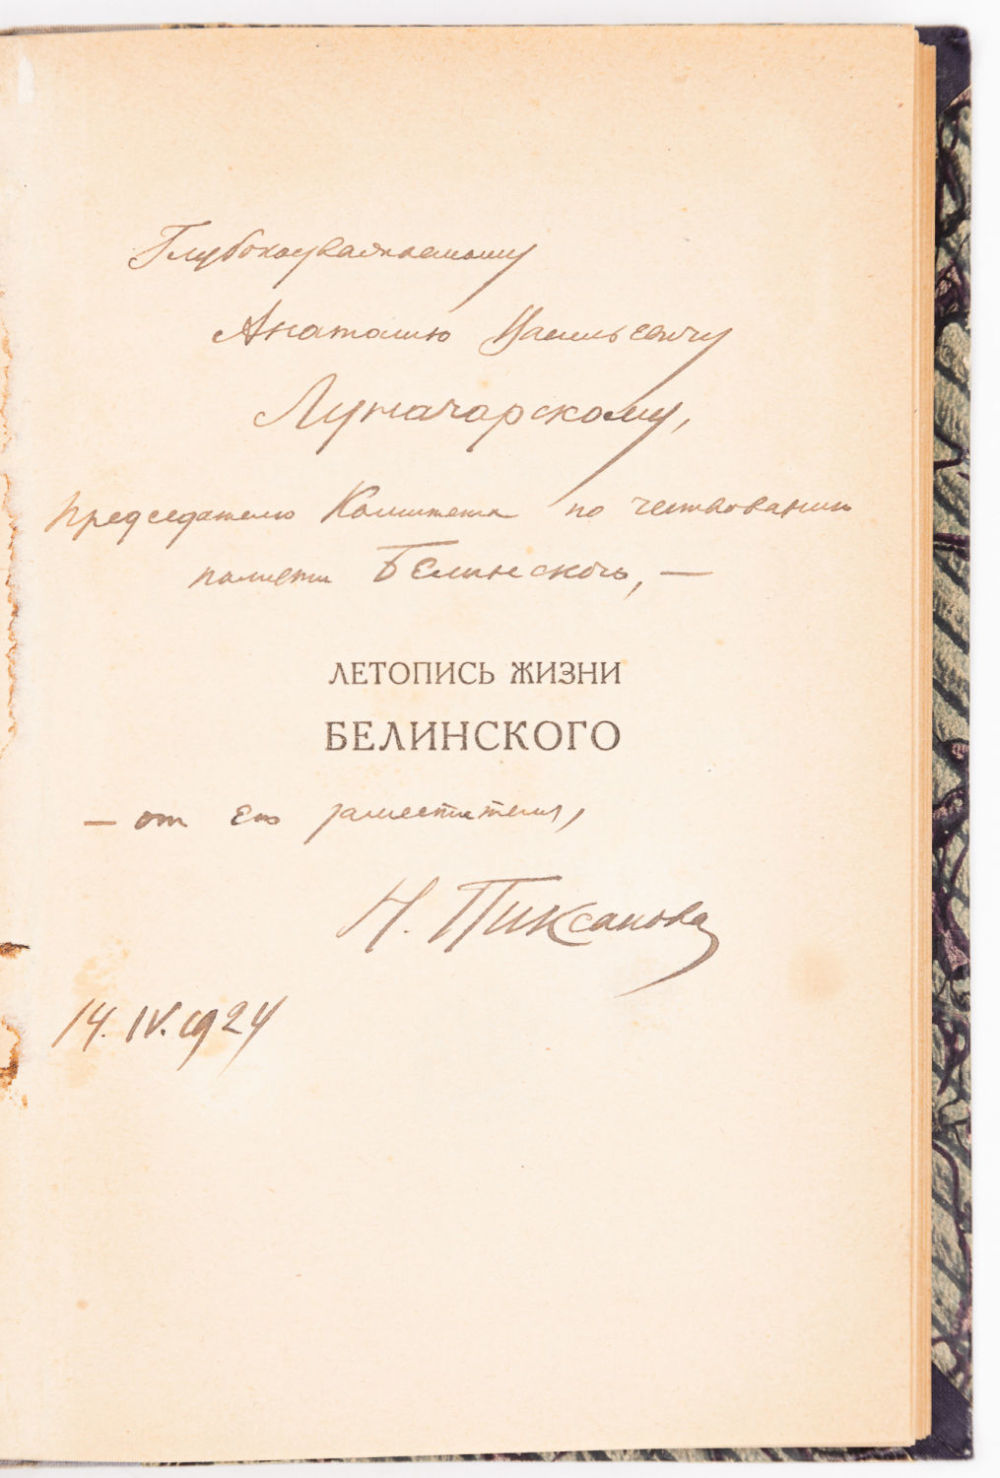 Глубокоуважаемому
Анатолию Васильевичу
Луначарскому,
председателю Комитета по чествованию
памяти Белинского, —
ЛЕТОПИСЬ ЖИЗНИ
БЕЛИНСКОГО
— от его заместителя,
Н. Пиксанова
14. IV. 1924